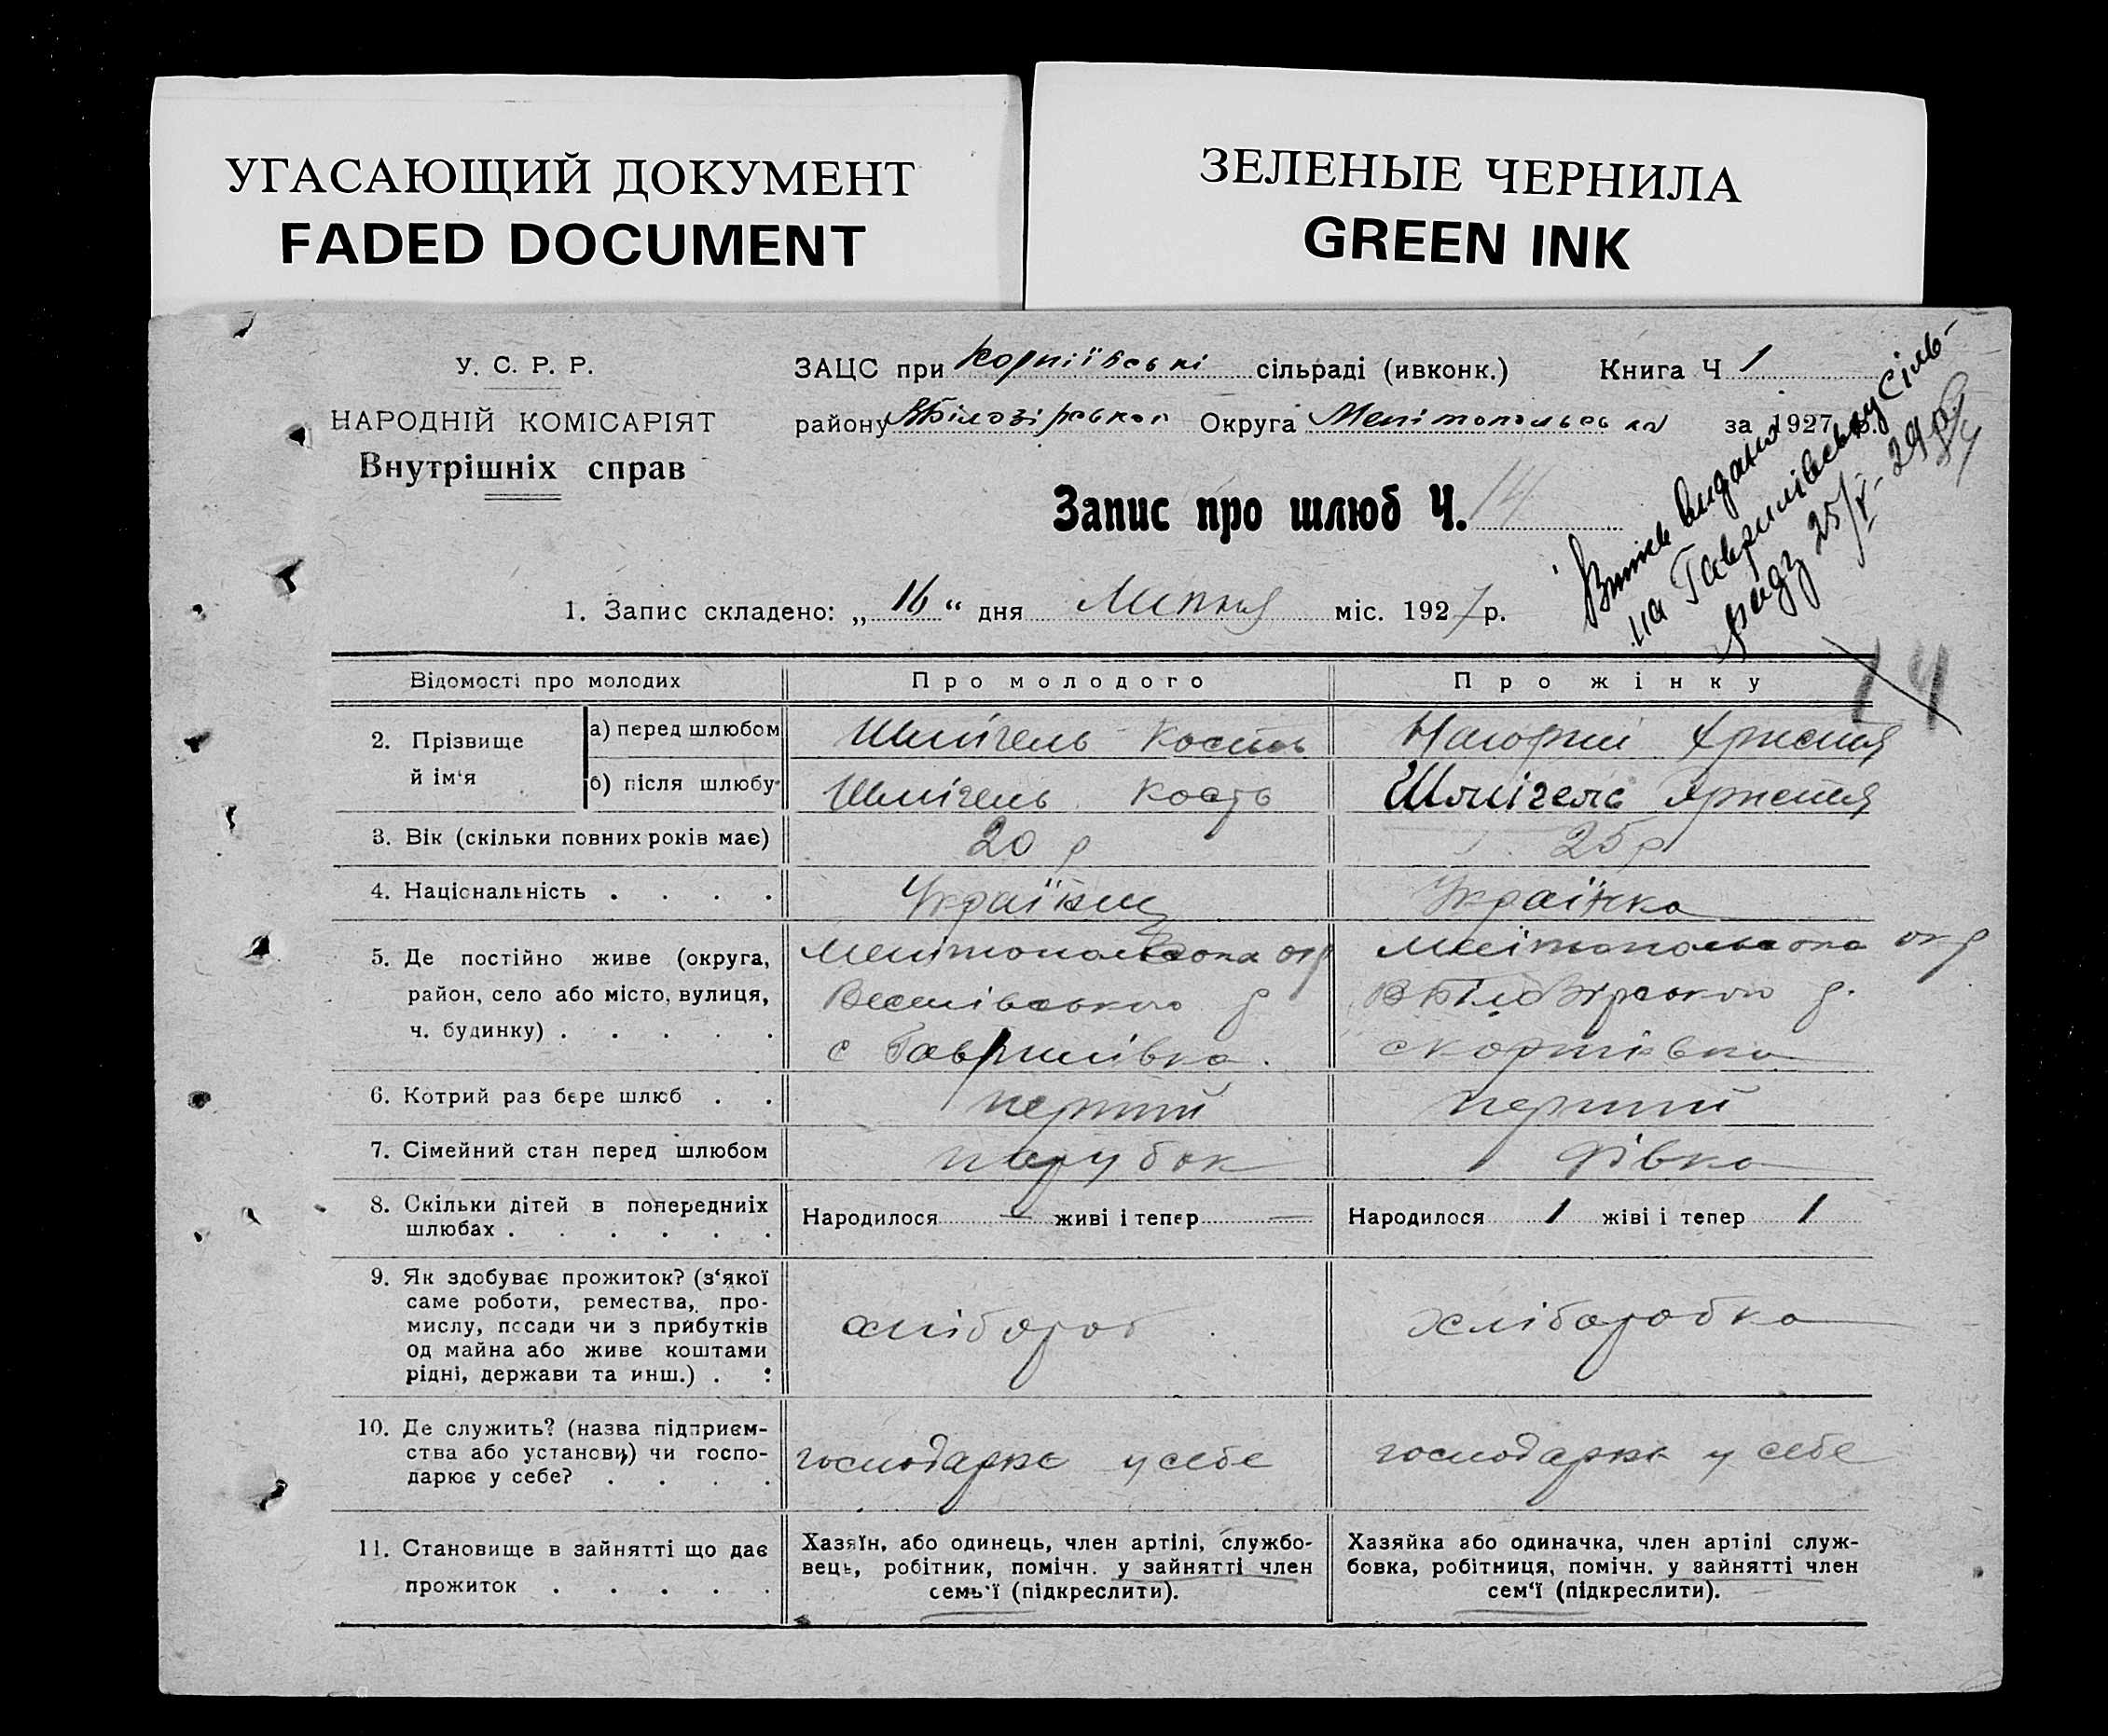 УГАСАЮЩИЙ ДОКУМЕНТ
FADED DOCUMENT
ЗЕЛЕНЫЕ ЧЕРНИЛА
GREEN INK
У. С. Р. Р.
НАРОДНІЙ КОМІСАРІЯТ
Внутрішніх справ
ЗАЦС при Корніївські сільраді (ивконк.) Книга Ч 1
району ВБілозірської Округа Мелітопольська за 1927 р.
Запис про шлюб Ч. 14
Витяг видано
на Гаврилівську сіль-
раду 25/V-29 р.
1. Запис складено: „ 16 “ дня Липня міс. 1927 р.
14
Відомості про молодих Про молодого Про жінку
2. Прізвище й ім‘я а) перед шлюбом Шмігель Кость Нагорні Христя
б) після шлюбу Шмігель Кость Шмігель Христя
3. Вік (скільки повних років має) 20 р 25 р
4. Національність . . . . Українц Українка
5. Де постійно живе (округа, Мелітопольска окр Мелітопольска окр
район, село або місто, вулиця, Веселівського р ВБілозірського р.
ч. будинку) . . . . . с Гаврилівка. с Корнівка
6. Котрий раз бере шлюб . . перший перший
7. Сімейний стан перед шлюбом парубок дівка
8. Скільки дітей в попередниіх
шлюбах . . . . . . Народилося — живі і тепер — Народилося 1 жіві і тепер 1
9. Як здобуває прожиток? (з‘якої
саме роботи, ремества, про-
мислу, посади чи з прибутків
од майна або живе коштами
рідні, держави та инш.) . : хлібороб хлібаробка
10. Де служить? (назва підприєм-
ства або установи) чи госпо-
дарює у себе? . . . . господарює у себе господарює у себе
11. Становище в зайнятті що дає
прожиток . . . . .
Хазяїн, або одинець, член артілі, службо-
вець, робітник, помічн. у зайнятті член
семь‘ї (підкреслити).
Хазяйка або одиначка, член артілі служ-
бовка, робітниця, помічн. у зайнятті член
сем‘ї (підкреслити).